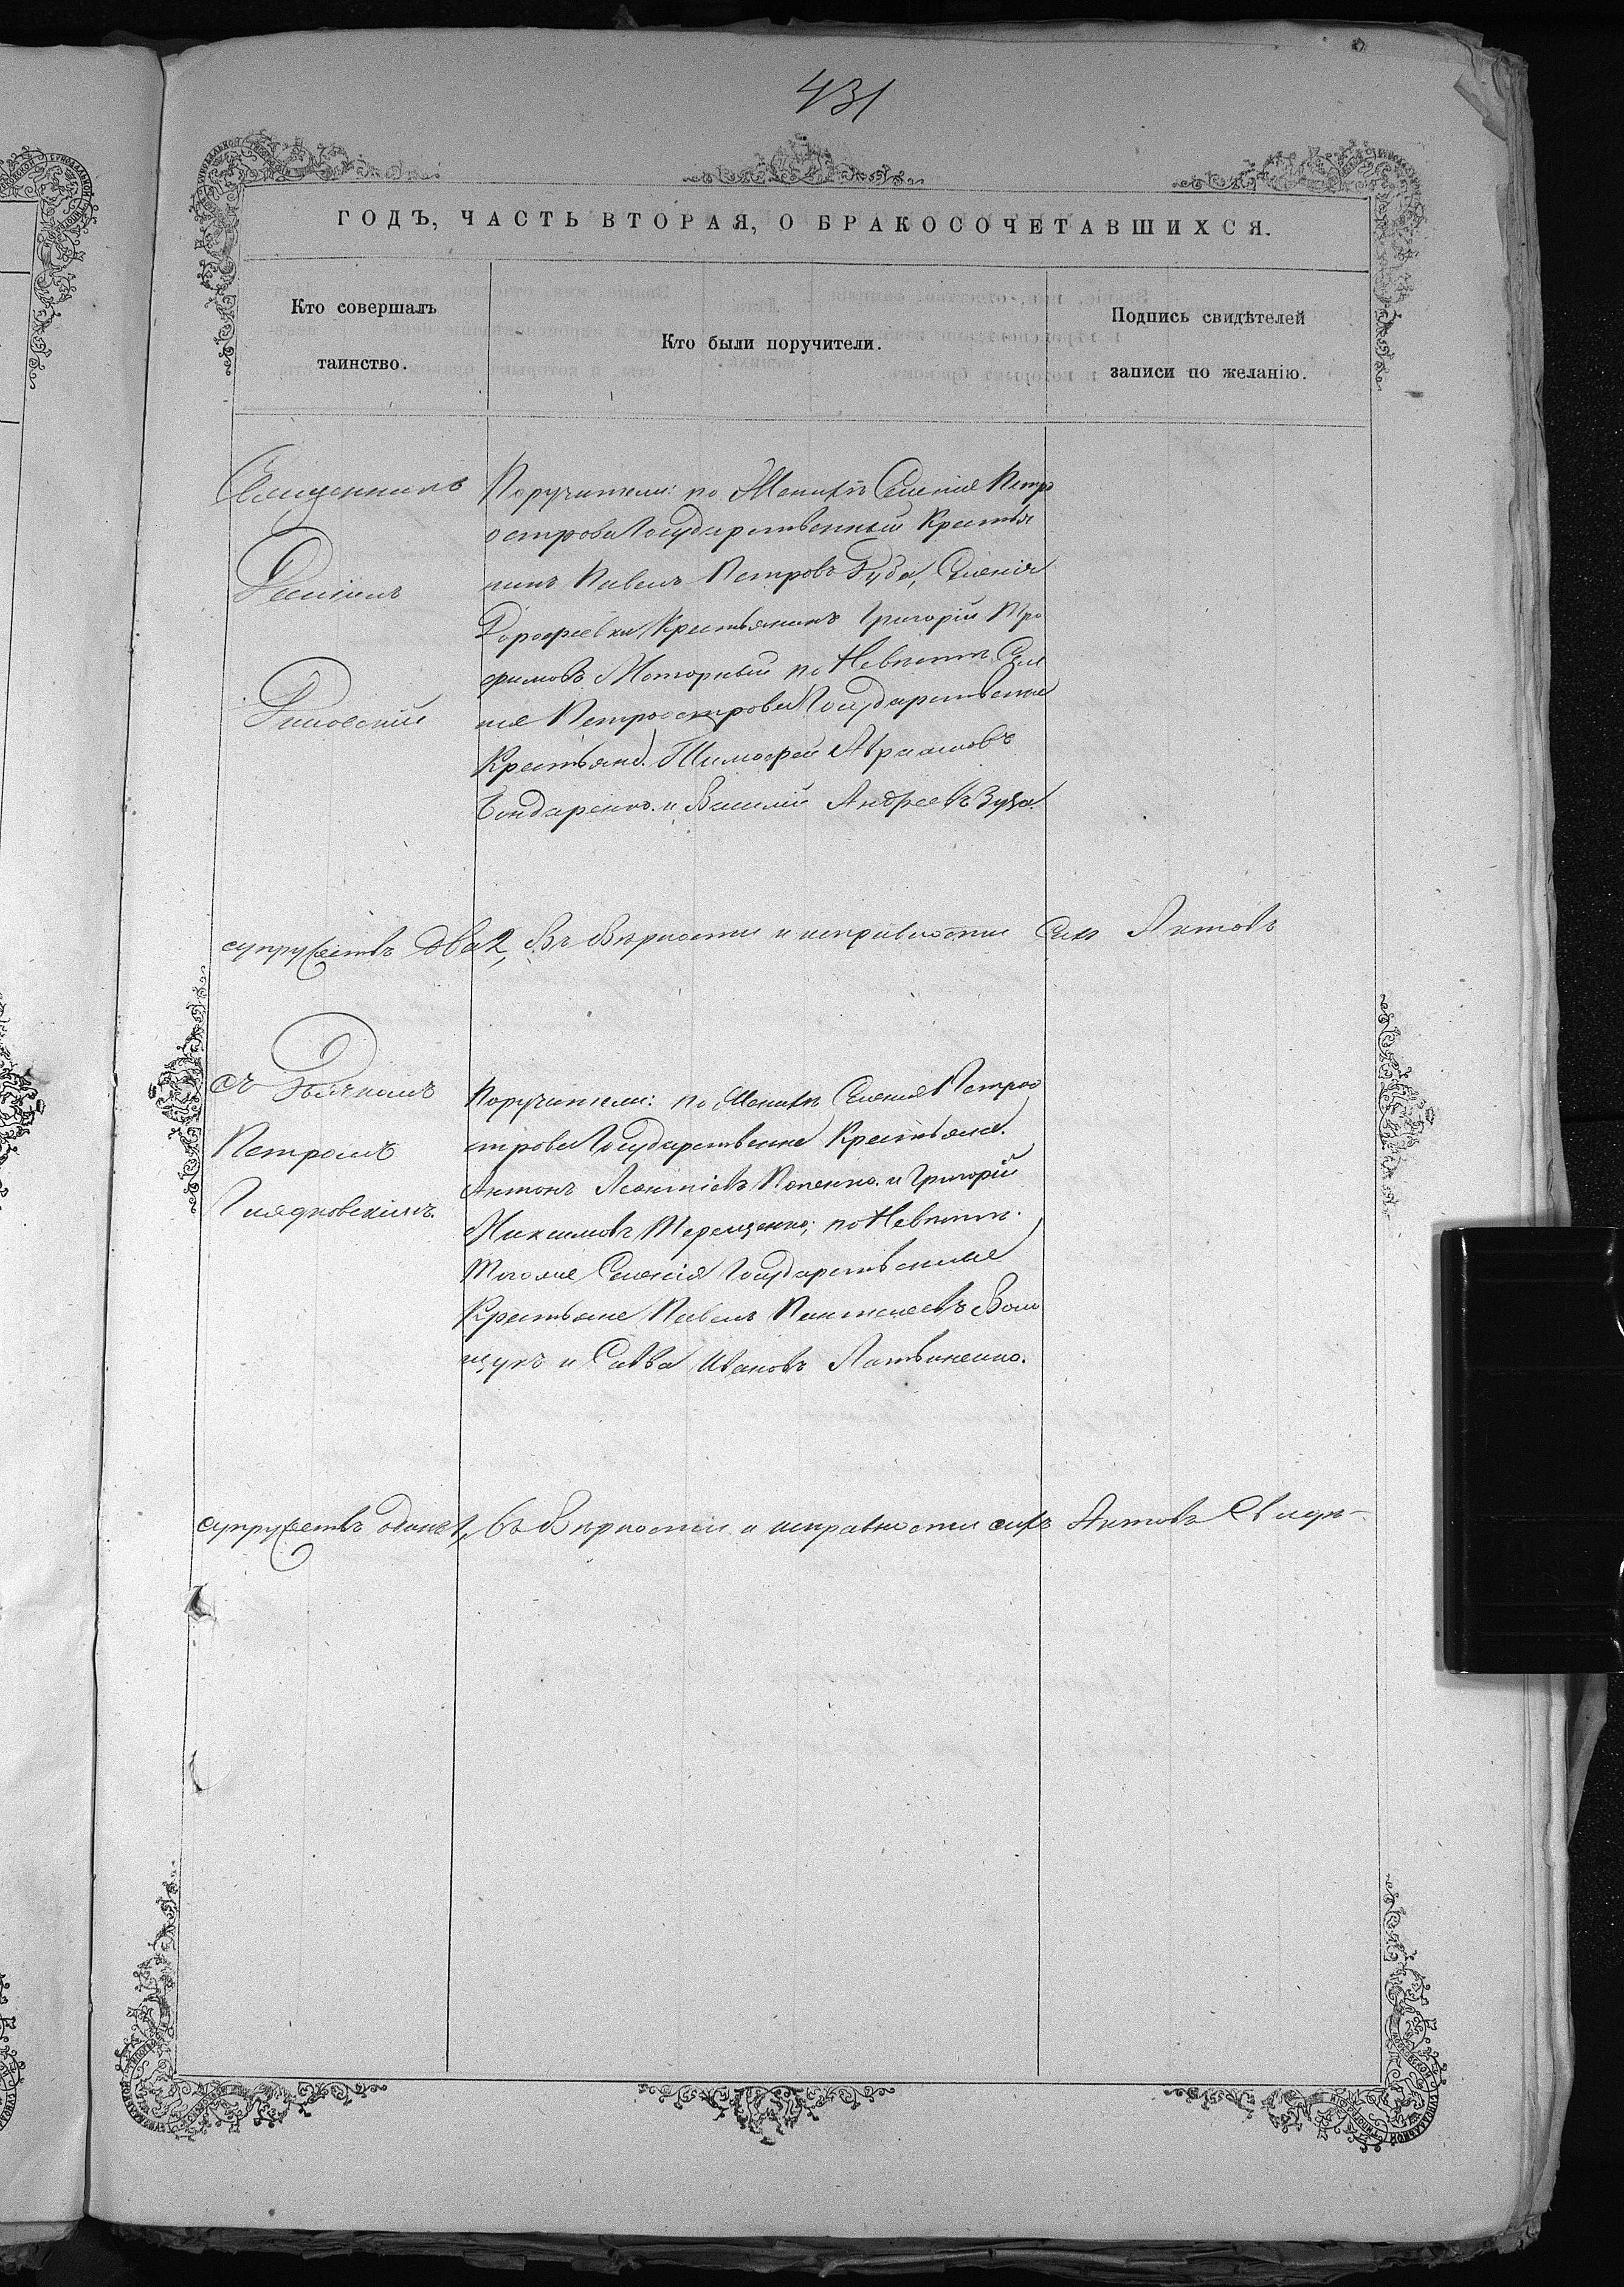 431
ГОДЪ, ЧАСТЬ ВТОРАЯ, О БРАКОСОЧЕТАВШИХСЯ.
Кто совершалъ
таинство.
Кто были поручители.
Подпись свидѣтелей
записи по желанію.
Священникъ
Поручители: по Женихѣ Селенія Петро
острова Государственный Крестья
нинъ Павелъ Петровъ Селенія
Дорофеевки Крестьянинъ Григорій Тро
фимовъ Моторный по Невѣстѣ Селе
нія Петроострова Государственные
Крестьяне Тимофей Абрамовъ
Бондаренко и Василій Андреевъ
супружествъ два 2, Въ вѣрности и исправности Сихъ Актовъ
съ Дьячкомъ
Петромъ
Поручители: по Женихѣ Селенія Петроо
строва Государственные Крестьяне
Антонъ Леонтіевъ Попенко и Григорій
Максимовъ Терещенко; по Невѣстѣ
Тогоже Селенія Государственные
Крестьяне Павелъ Пантелеевъ
щукъ и Савва Ивановъ Литвиненко.
супружествъ одинъ 1, въ вѣрности и исправности сихъ Актовъ Свидѣ-